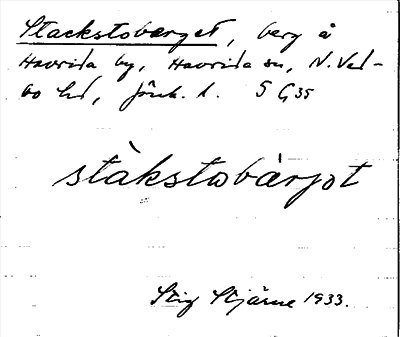 Stackstobærget, berg å
Haurida by, Haurida sn, N. Ved-
bo hd, Jönk. l. 5 G 35
stàkstωbàrjot
Stig Stjärne 1933.